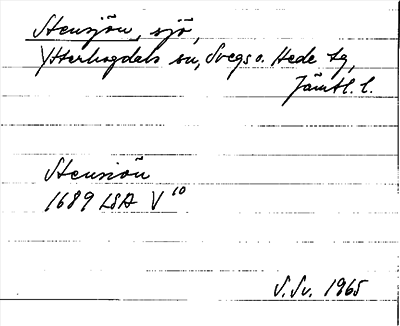 Stensjön, sjö,
Ytterhogdals sn, Svegs o. Hede tg,
Jämtl. l.
Stensiön
1689 LSA V 10
S. Sv. 1965